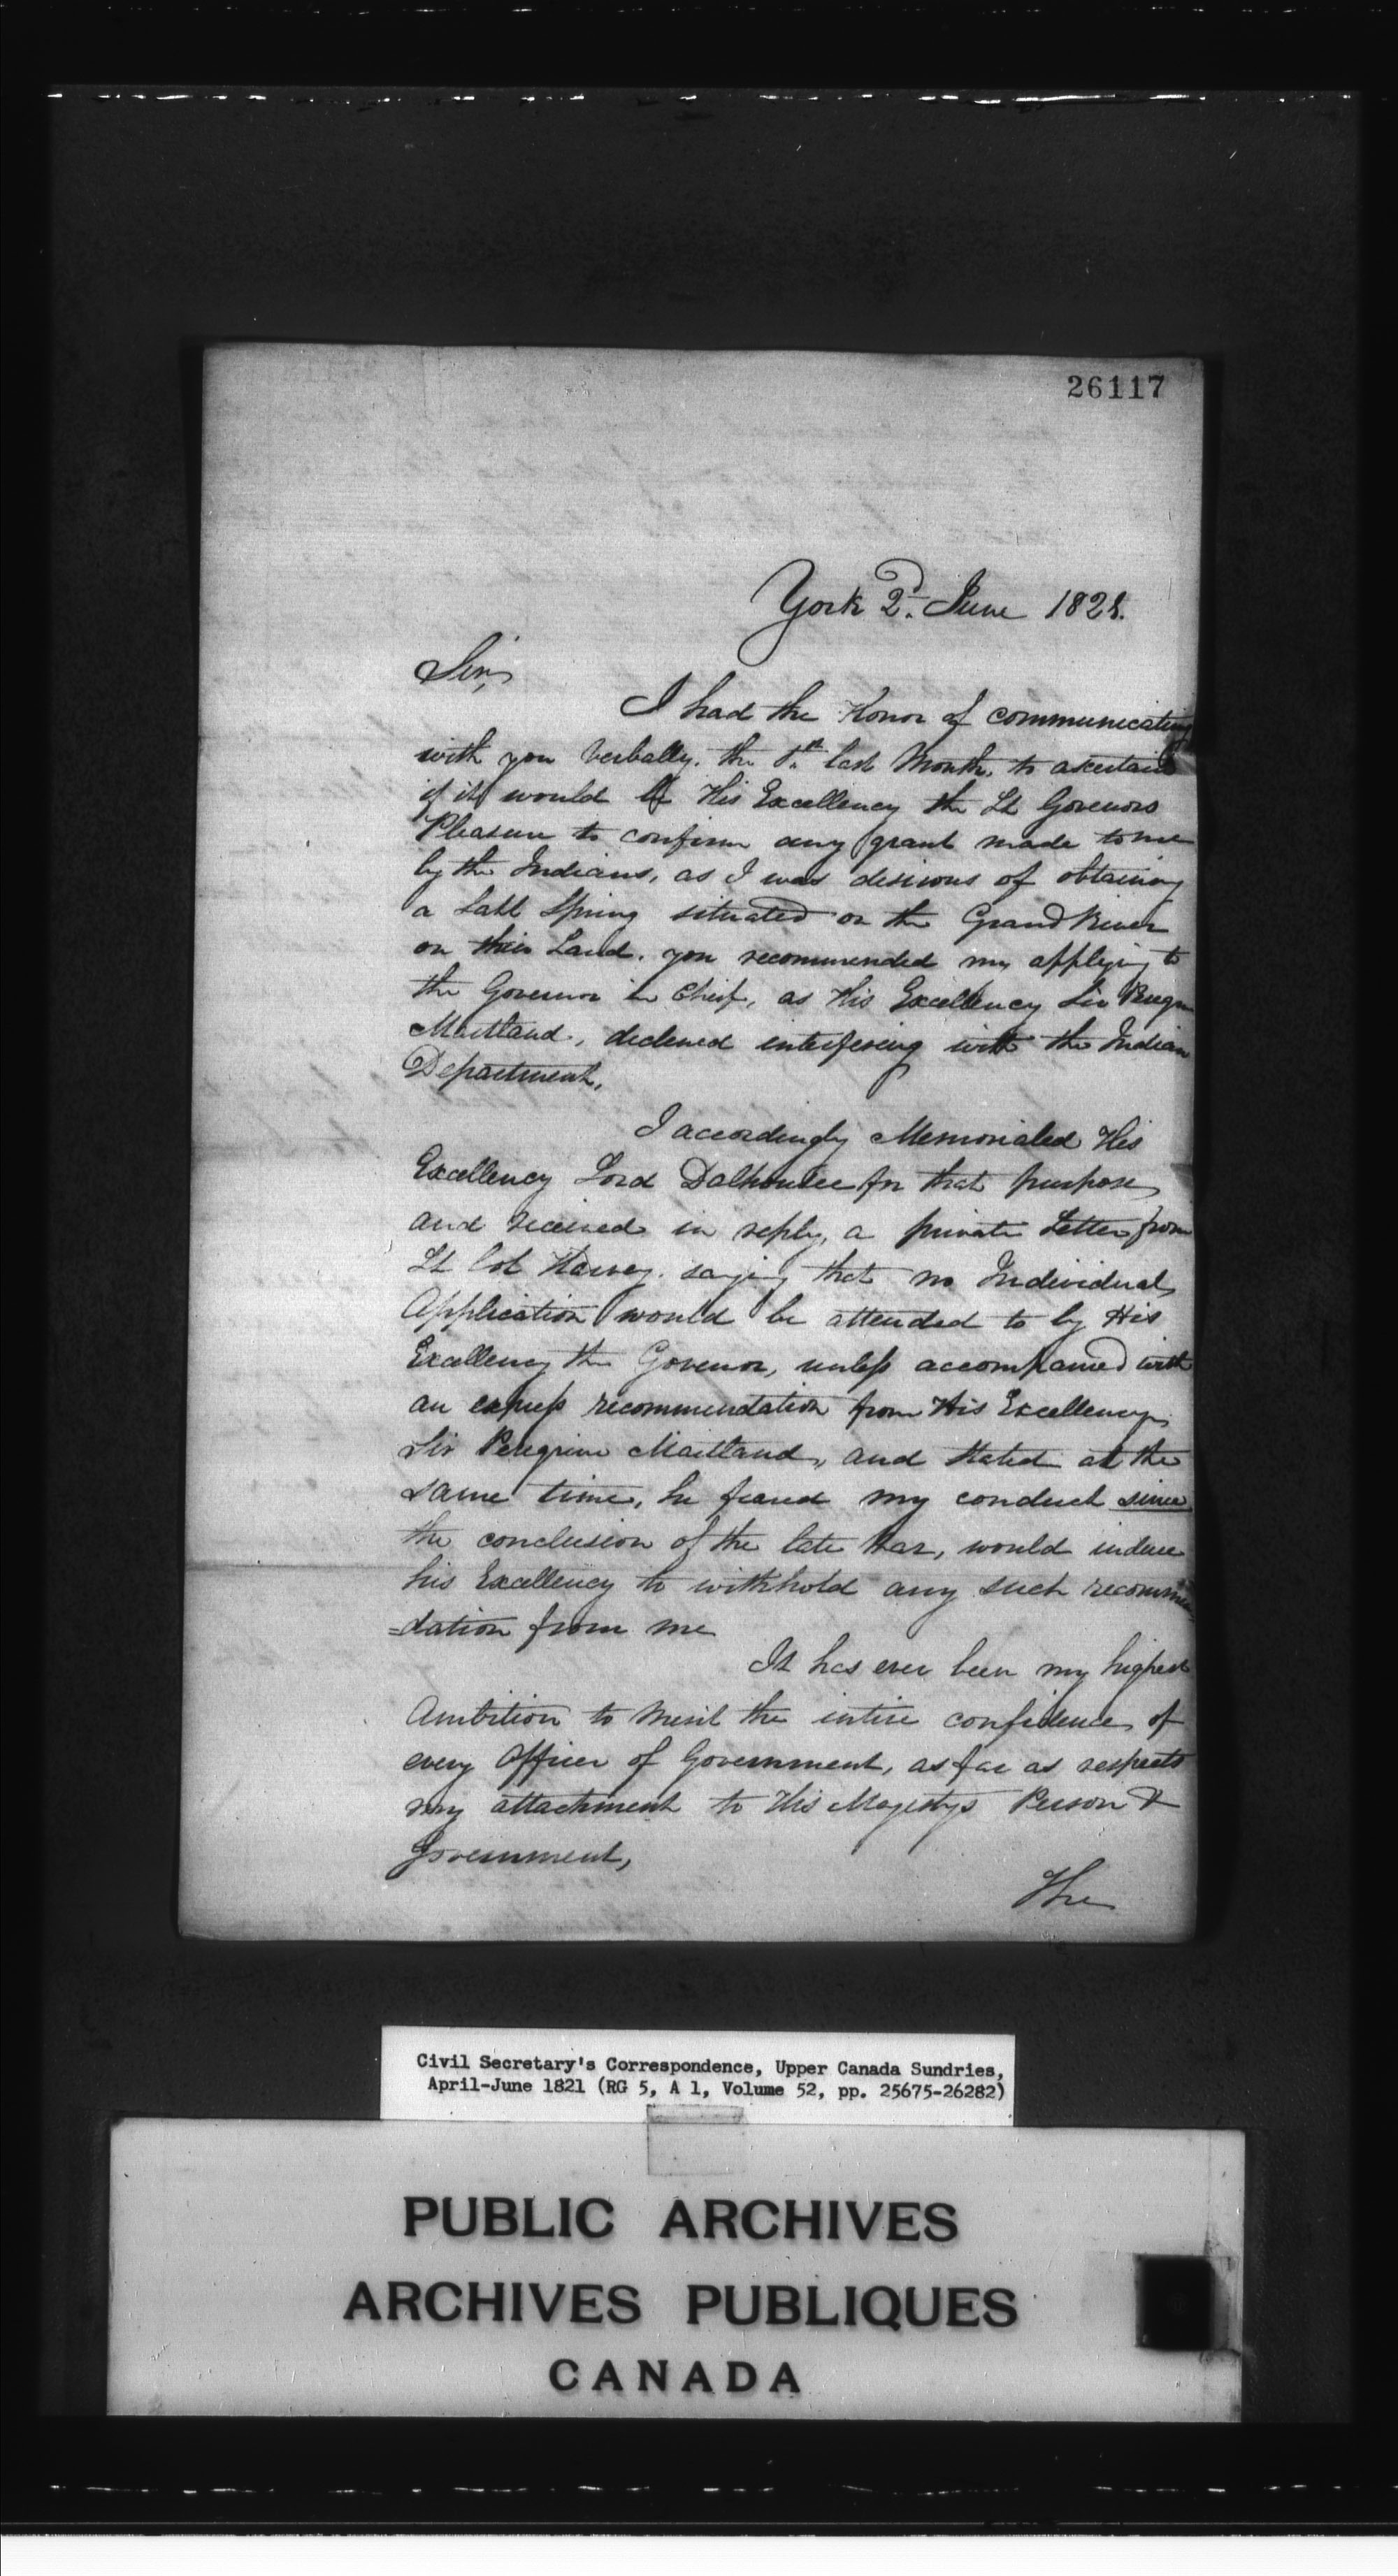 26117
York 2d. June 1821.
Sir,
I had the Honor of communicating
with you verbally. the last Month. to ascertain
if it would be His Excellency the Lt Govenors
Pleasure to confirm any grant made to me
by the Indians, as I was desirous of obtaining
a Salt Spring situated on the Grand River
on their Land. you recommended my applying to
the Govenor in Chief, as His Excellency Sir
Maitland, declined interfering with the Indian
Department,
I accordingly Memorialed His
Excellency Lord Dalhousie for that purpose,
and received in reply, a private Letter from
Lt Col Harvey. saying that no Individual
Application would be attended to by His
Excellency the Govenor, unless accompanied with
an express recommendation from His Excellency
Sir Peregrine Maitland, and stated at the
same time, he feared my conduct since
the conclusion of the late War, would induce
his Excellency to withhold any such recommen
=dation from me
It has ever been my highest
Ambition to merit the intire confidence of
every Officer of Government, as far as respects
my attachment to His Majestys Person &
Government,
The
Civil Secretary's Correspondence, Upper Canada Sundries,
April-June 1821 (RG 5, A 1, Volume 52, pp. 25675-26282)
PUBLIC ARCHIVES
ARCHIVES PUBLIQUES
CANADA